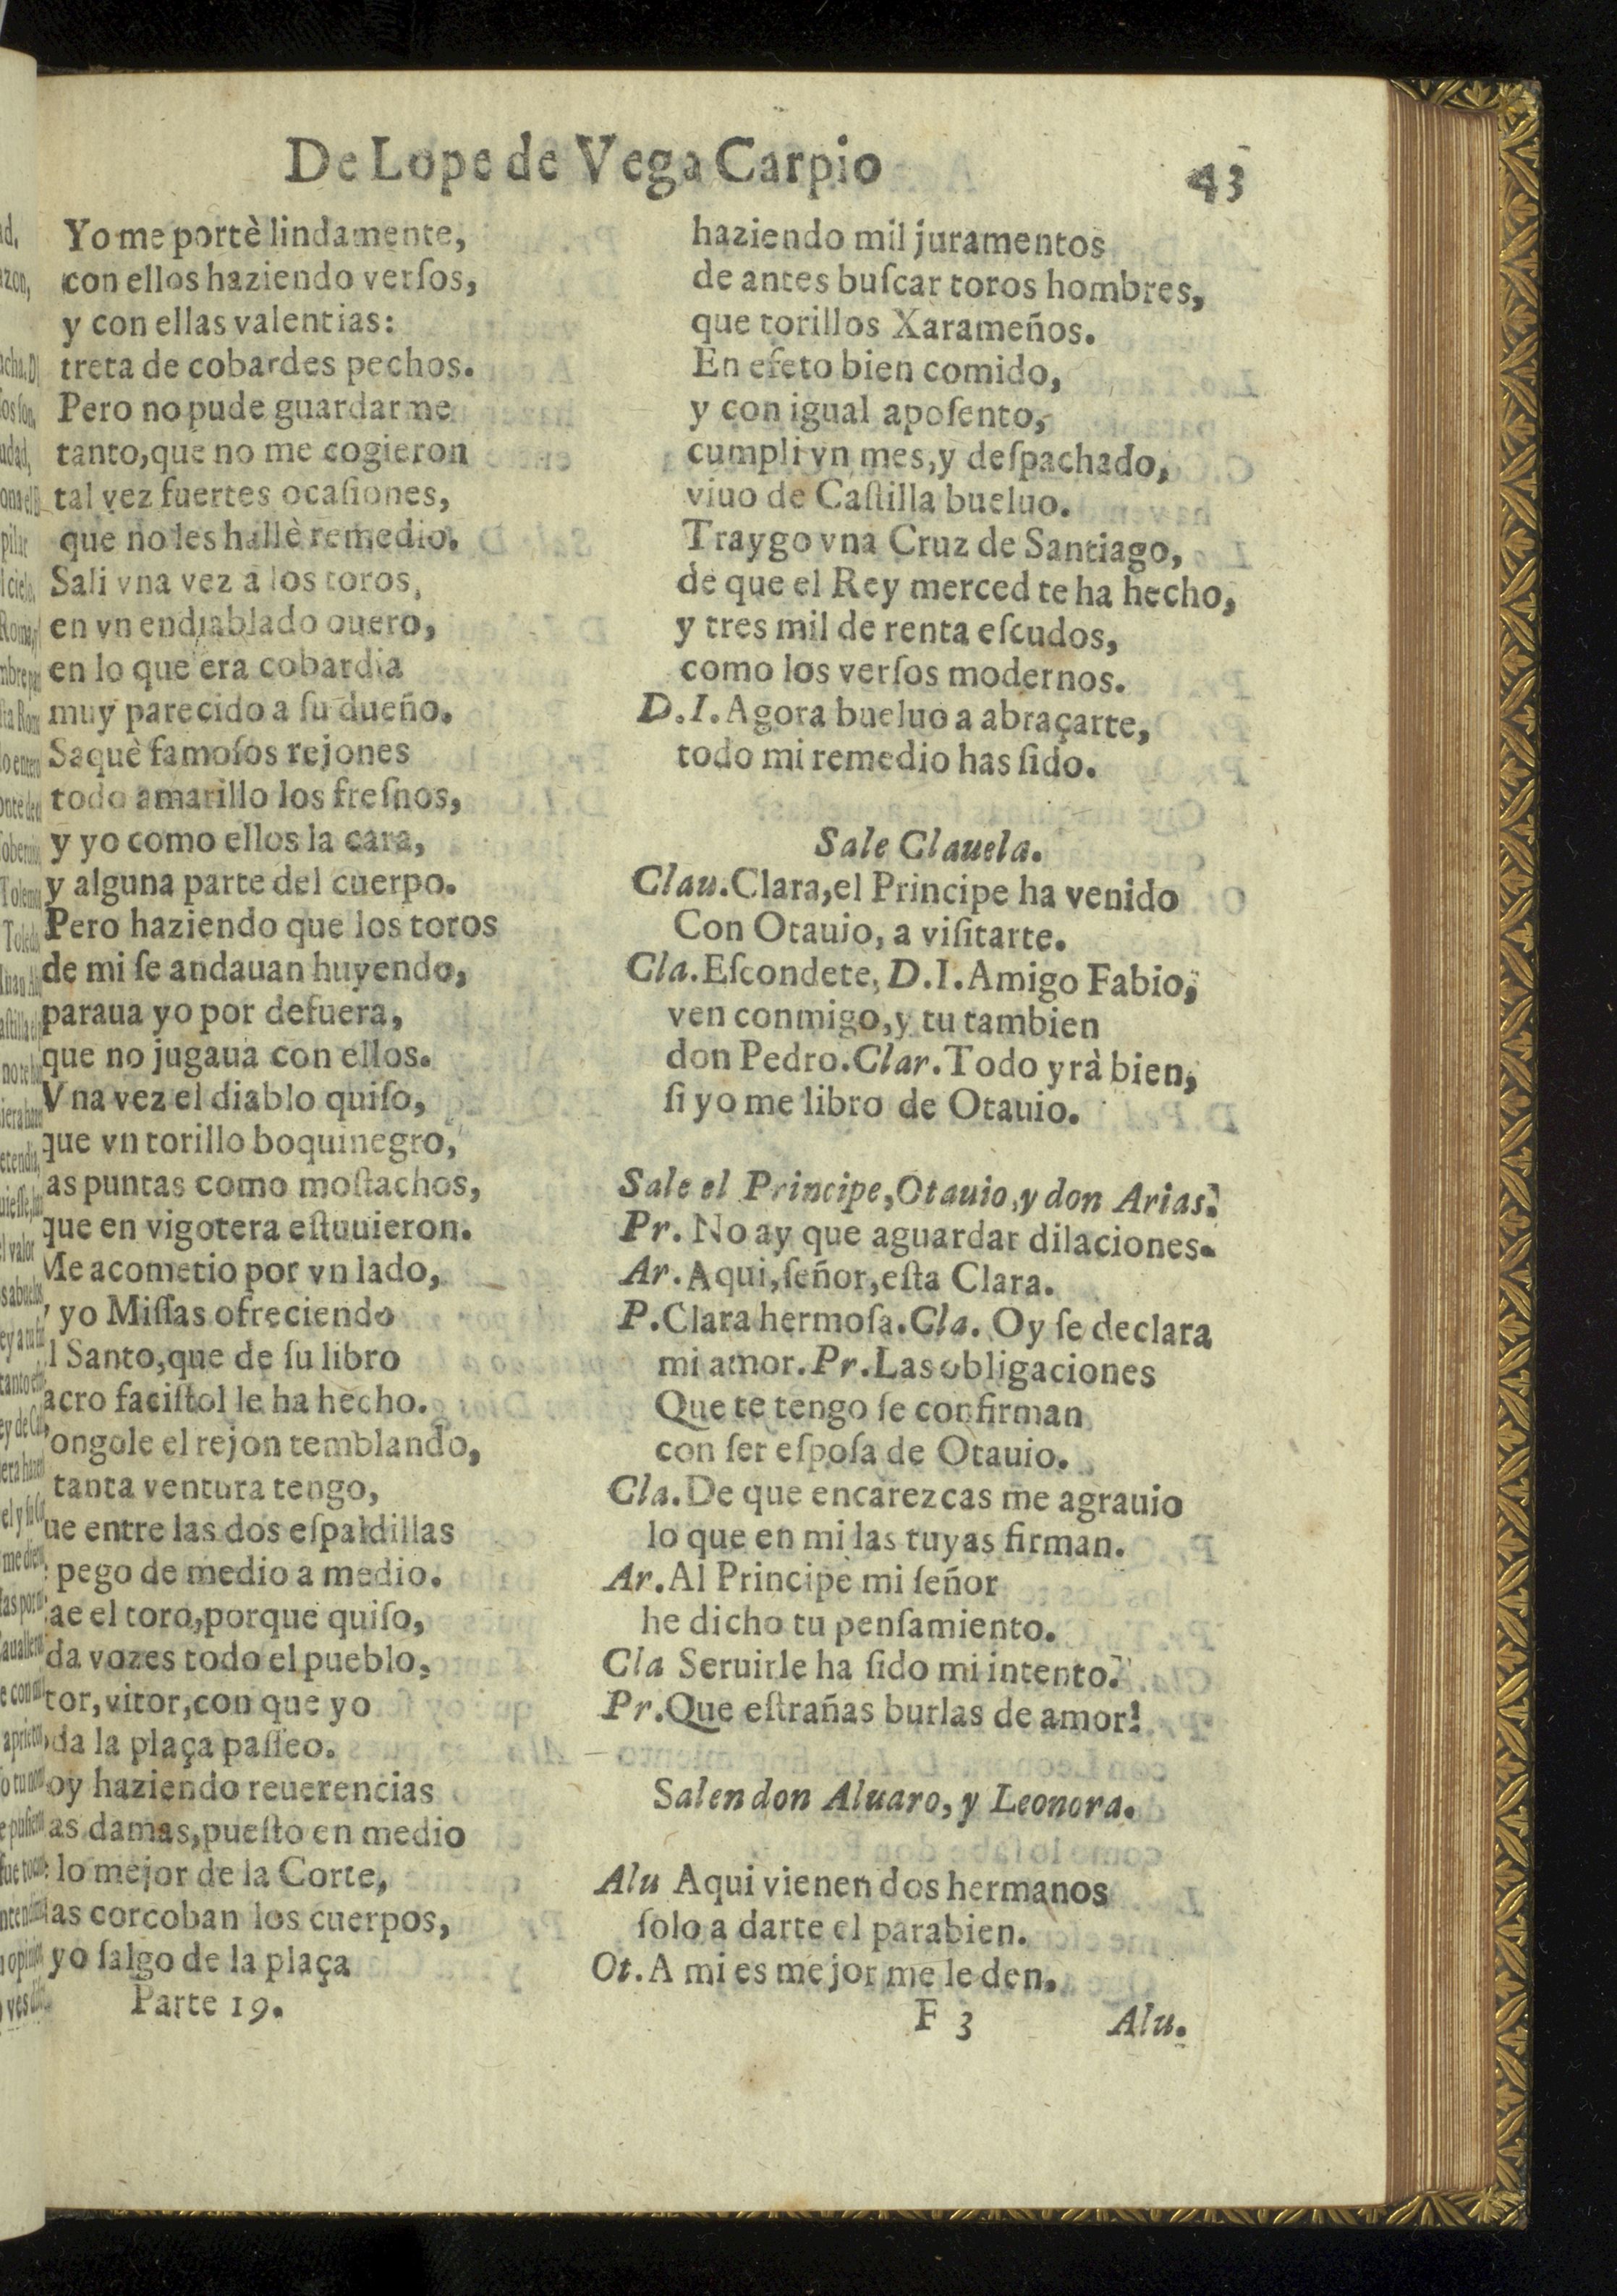 De Lope de Vega Carpio
43
Yo me portè lindamente,
con ellos haziendo verſos,
y con ellas valentias:
treta de cobardes pechos.
Pero no pude guardarme
tanto, que no me cogieron
tal vez fuertes ocaſiones,
que no les hallè remedio.
Sali vna vez a los toros,
en vn endiablado ouero,
en lo que era cobardia
muy parecido a ſu dueño.
Saquè famoſos rejones
todo amarillo los freſnos,
y yo como ellos la cara,
y alguna parte del cuerpo.
Pero haziendo que los toros
de mi ſe andauan huyendo,
paraua yo por defuera,
que no jugaua con ellos.
Vna vez el diablo quiſo,
que vn torillo boquinegro,
as puntas como moſtachos,
que en vigotera eſtuuieron.
Me acometio por vn lado,
yo Miſſas ofreciendo
l Santo, que de ſu libro
acro faciſtol le ha hecho.
ongole el rejon temblando,
tanta ventura tengo,
ue entre las dos eſpaldillas
pego de medio a medio.
ae el toro, porque quiſo,
da vozes todo el pueblo,
tor, vitor, con que yo
da la plaça paſſeo.
oy haziendo reuerencias
as damas, pueſto en medio
lo mejor de la Corte,
as corcoban los cuerpos,
yo ſalgo de la plaça
Parte 19.
haziendo mil juramentos
de antes buſcar toros hombres,
que torillos Xarameños.
En efeto bien comido,
y con igual apoſento,
cumpli vn mes, y deſpachado,
viuo de Caſtilla bueluo.
Traygo vna Cruz de Santiago,
de que el Rey merced te ha hecho,
y tres mil de renta eſcudos,
como los verſos modernos.
D. I. Agora bueluo a abraçarte,
todo mi remedio has ſido.
Sale Clauela.
Clau. Clara, el Principe ha venido
Con Otauio, a viſitarte.
Cla. Eſcondete, D. I. Amigo Fabio,
ven conmigo, y tu tambien
don Pedro. Clar. Todo yrà bien,
ſi yo me libro de Otauio.
Sale el Principe, Otauio, y don Arias.
Pr. No ay que aguardar dilaciones.
Ar. Aqui, ſeñor, eſta Clara.
P. Clara hermoſa. Cla. Oy ſe declara
mi amor. Pr. Las obligaciones
Que te tengo ſe confirman
con ſer eſpoſa de Otauio.
Cla. De que encarezcas me agrauio
lo que en mi las tuyas firman.
Ar. Al Principe mi ſeñor
he dicho tu penſamiento.
Cla Seruirle ha ſido mi intento.
Pr. Que eſtrañas burlas de amor!
Salen don Aluaro, y Leonora.
Alu Aqui vienen dos hermanos
ſolo a darte el parabien.
Ot. A mi es mejor me le den.
F 3
Alu.